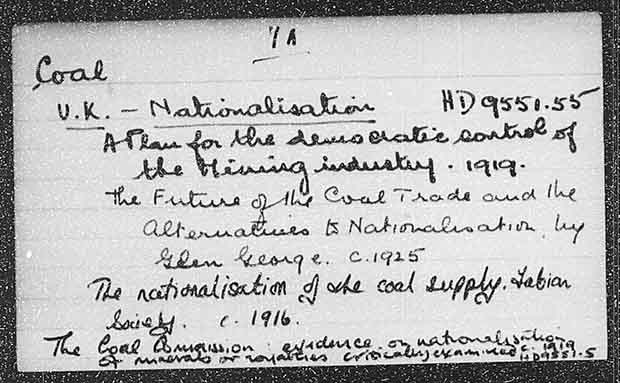 7A
Coal
U.K. - Nationalisation HD9551.55
A Plan for the democratic control of
the Mining industry. 1919.
The Future of the Coal Trade and the
Alternatives to Nationalisation, by
Glen George. c.1925
The nationalisation of the coal supply. Fabian
Society. c. 1916.
The Coal Commission: evidence on nationalisation
of minerals or royalties critically examined c. 1919
HD9551.5